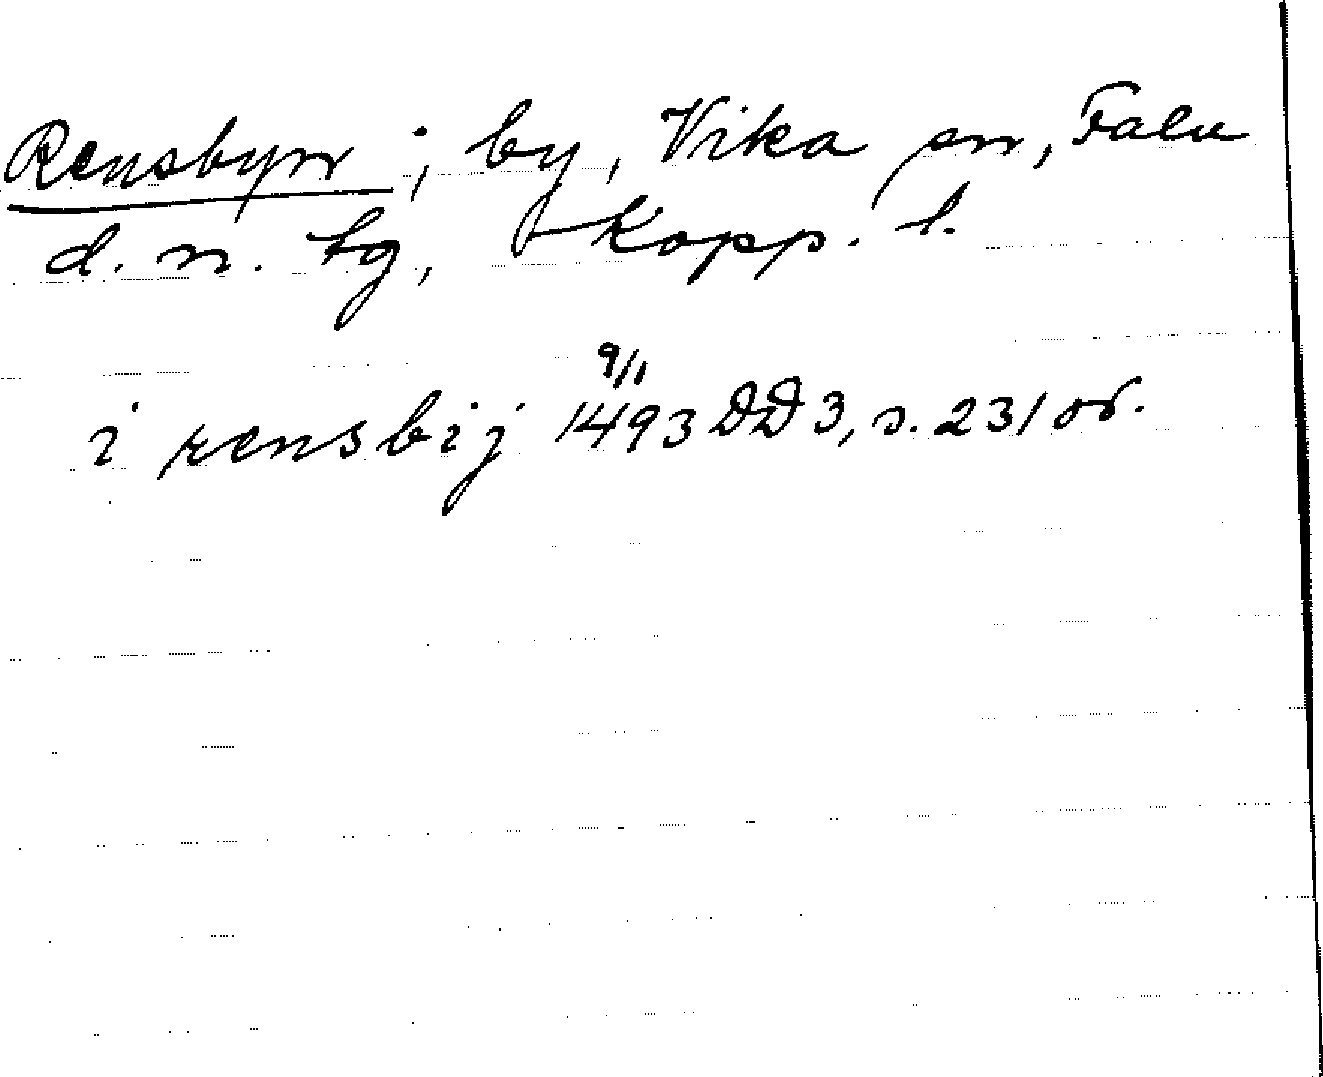 Rensbyn; by, Vika sn, Falu
d. n. tg, Kopp. l.
9/1
i rensbij 1493 DD 3, s. 231 or.